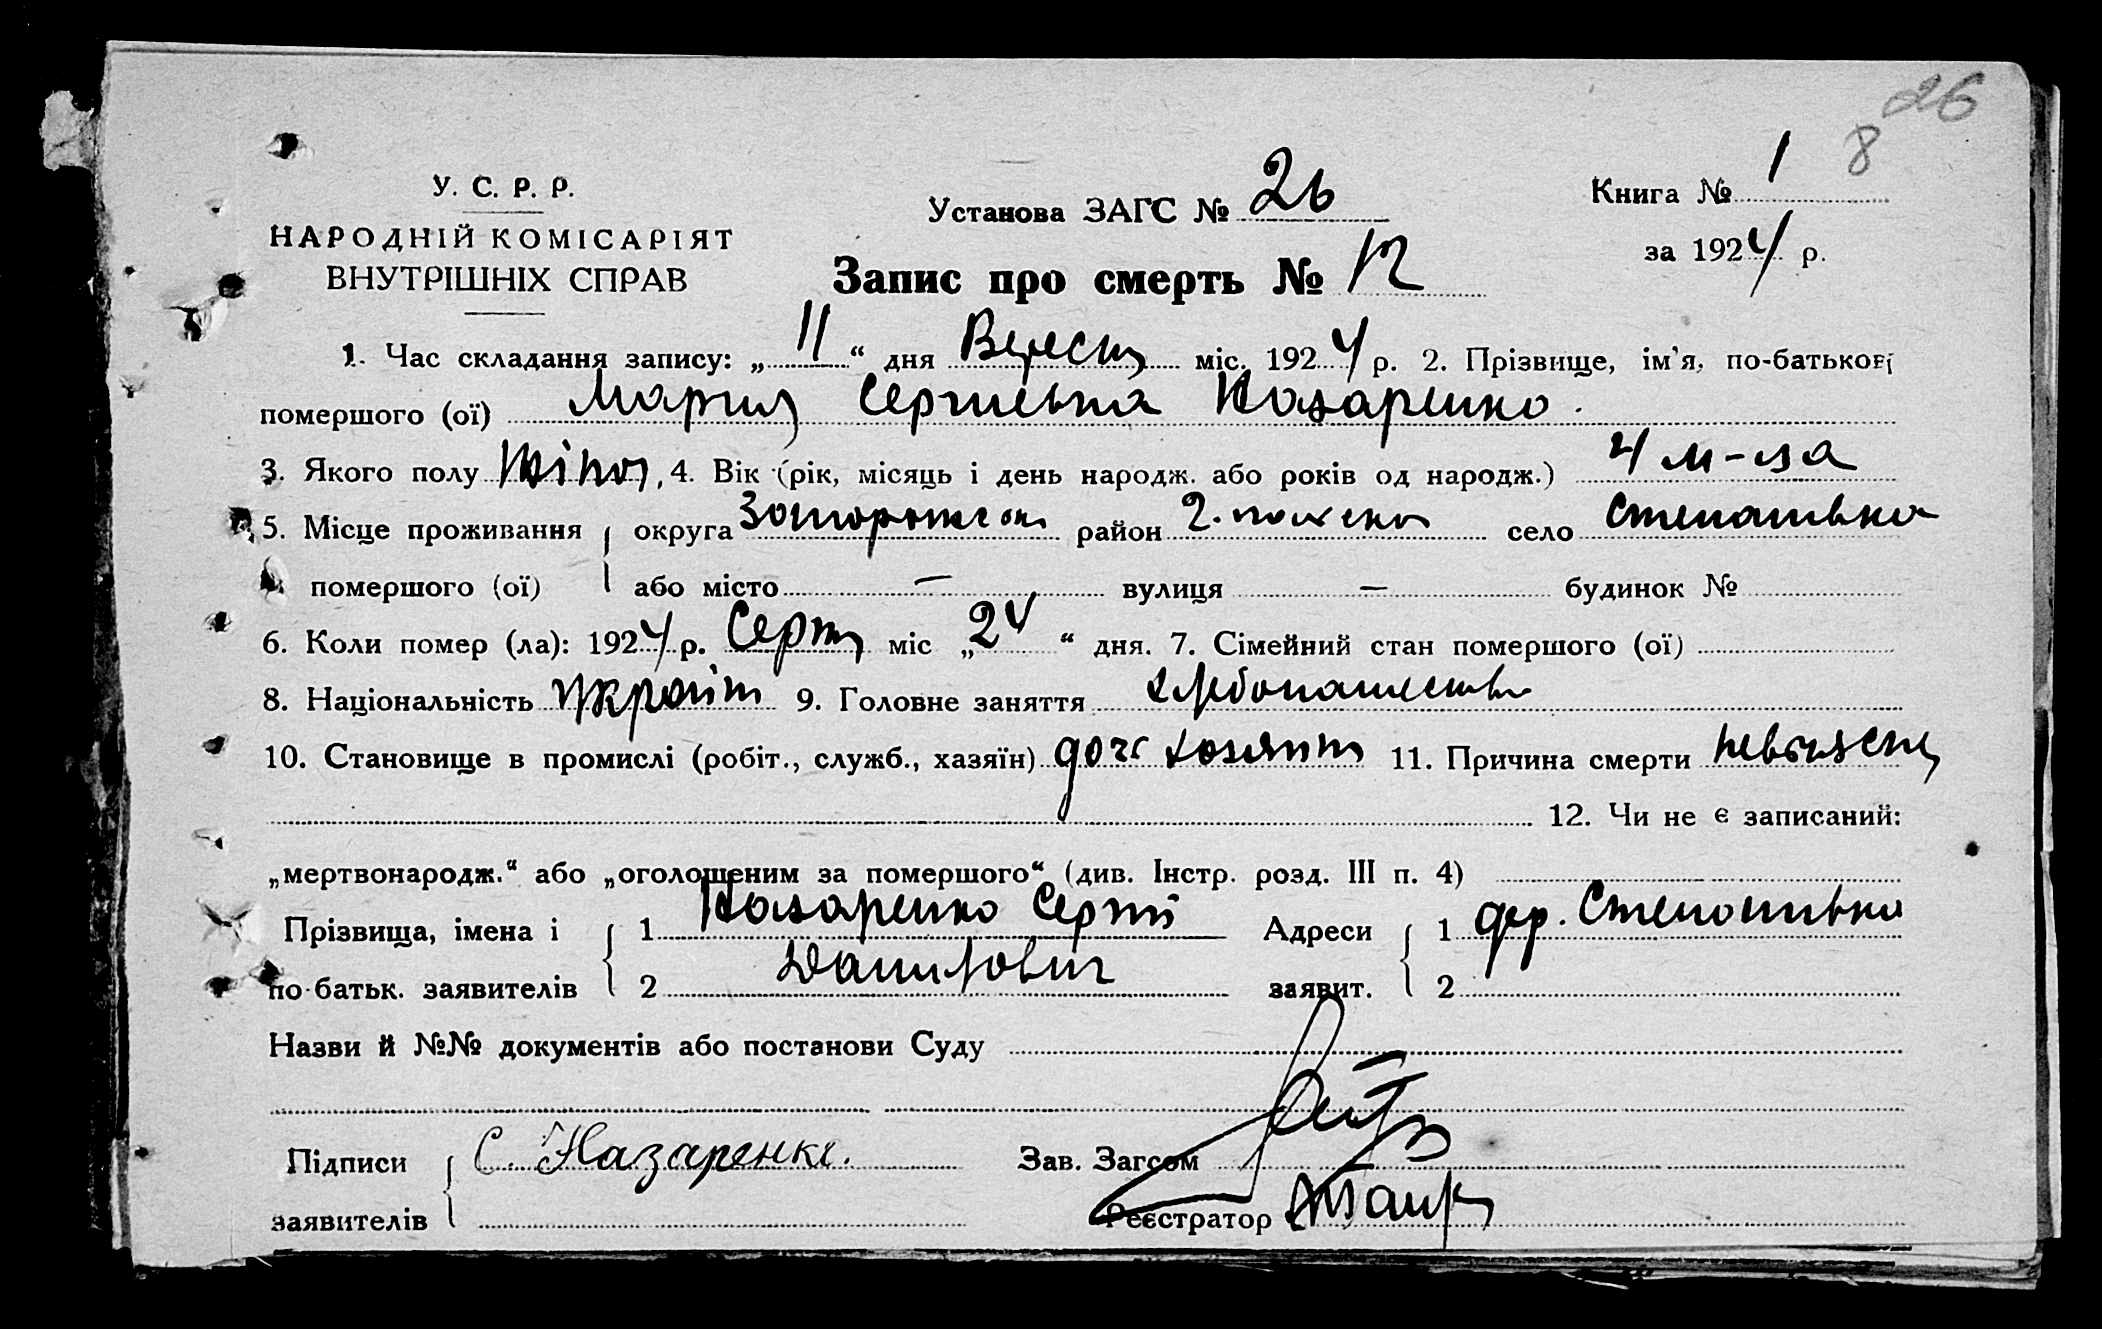 26
8
У. С. Р. Р.
НАРОДНІЙ КОМІСАРІЯТ
ВНУТРІШНІХ СПРАВ
Установа ЗАГС № 26
Книга № 1
за 1924 р.
Запис про смерть № 12
1. Час складання запису: „ 11 “ дня Вересн міс. 1924 р. 2. Прізвище, ім’я, по-батькові
помершого (ої) Мария Сергиевна Назаренко.
3. Якого полу жіноч, 4. Вік (рік, місяць і день народж. або років од народж.) 4 м-ца
5. Місце проживання округа Запорожск район село Степановка
помершого (ої) або місто — вулиця — будинок №
6. Коли помер (ла): 1924 р. Серпн міс „ 24 “ дня. 7. Сімейний стан помершого (ої)
8. Національність Україн 9. Головне заняття хлебопашество
10. Становище в промислі (робіт., служб., хазяїн) дочь хозяина 11. Причина смерти
12. Чи не є записаний:
„мертвонародж.“ або „оголошеним за помершого“ (див. Інстр. розд. III п. 4)
Прізвища, імена і 1 Назаренко Сергій Адреси 1 дер. Степановка
по-батьк. заявителів 2 Данилович заявит. 2
Назви й №№ документів або постанови Суду
Підписи С. Назаренко. Зав. Загсом
заявителів Реєстратор